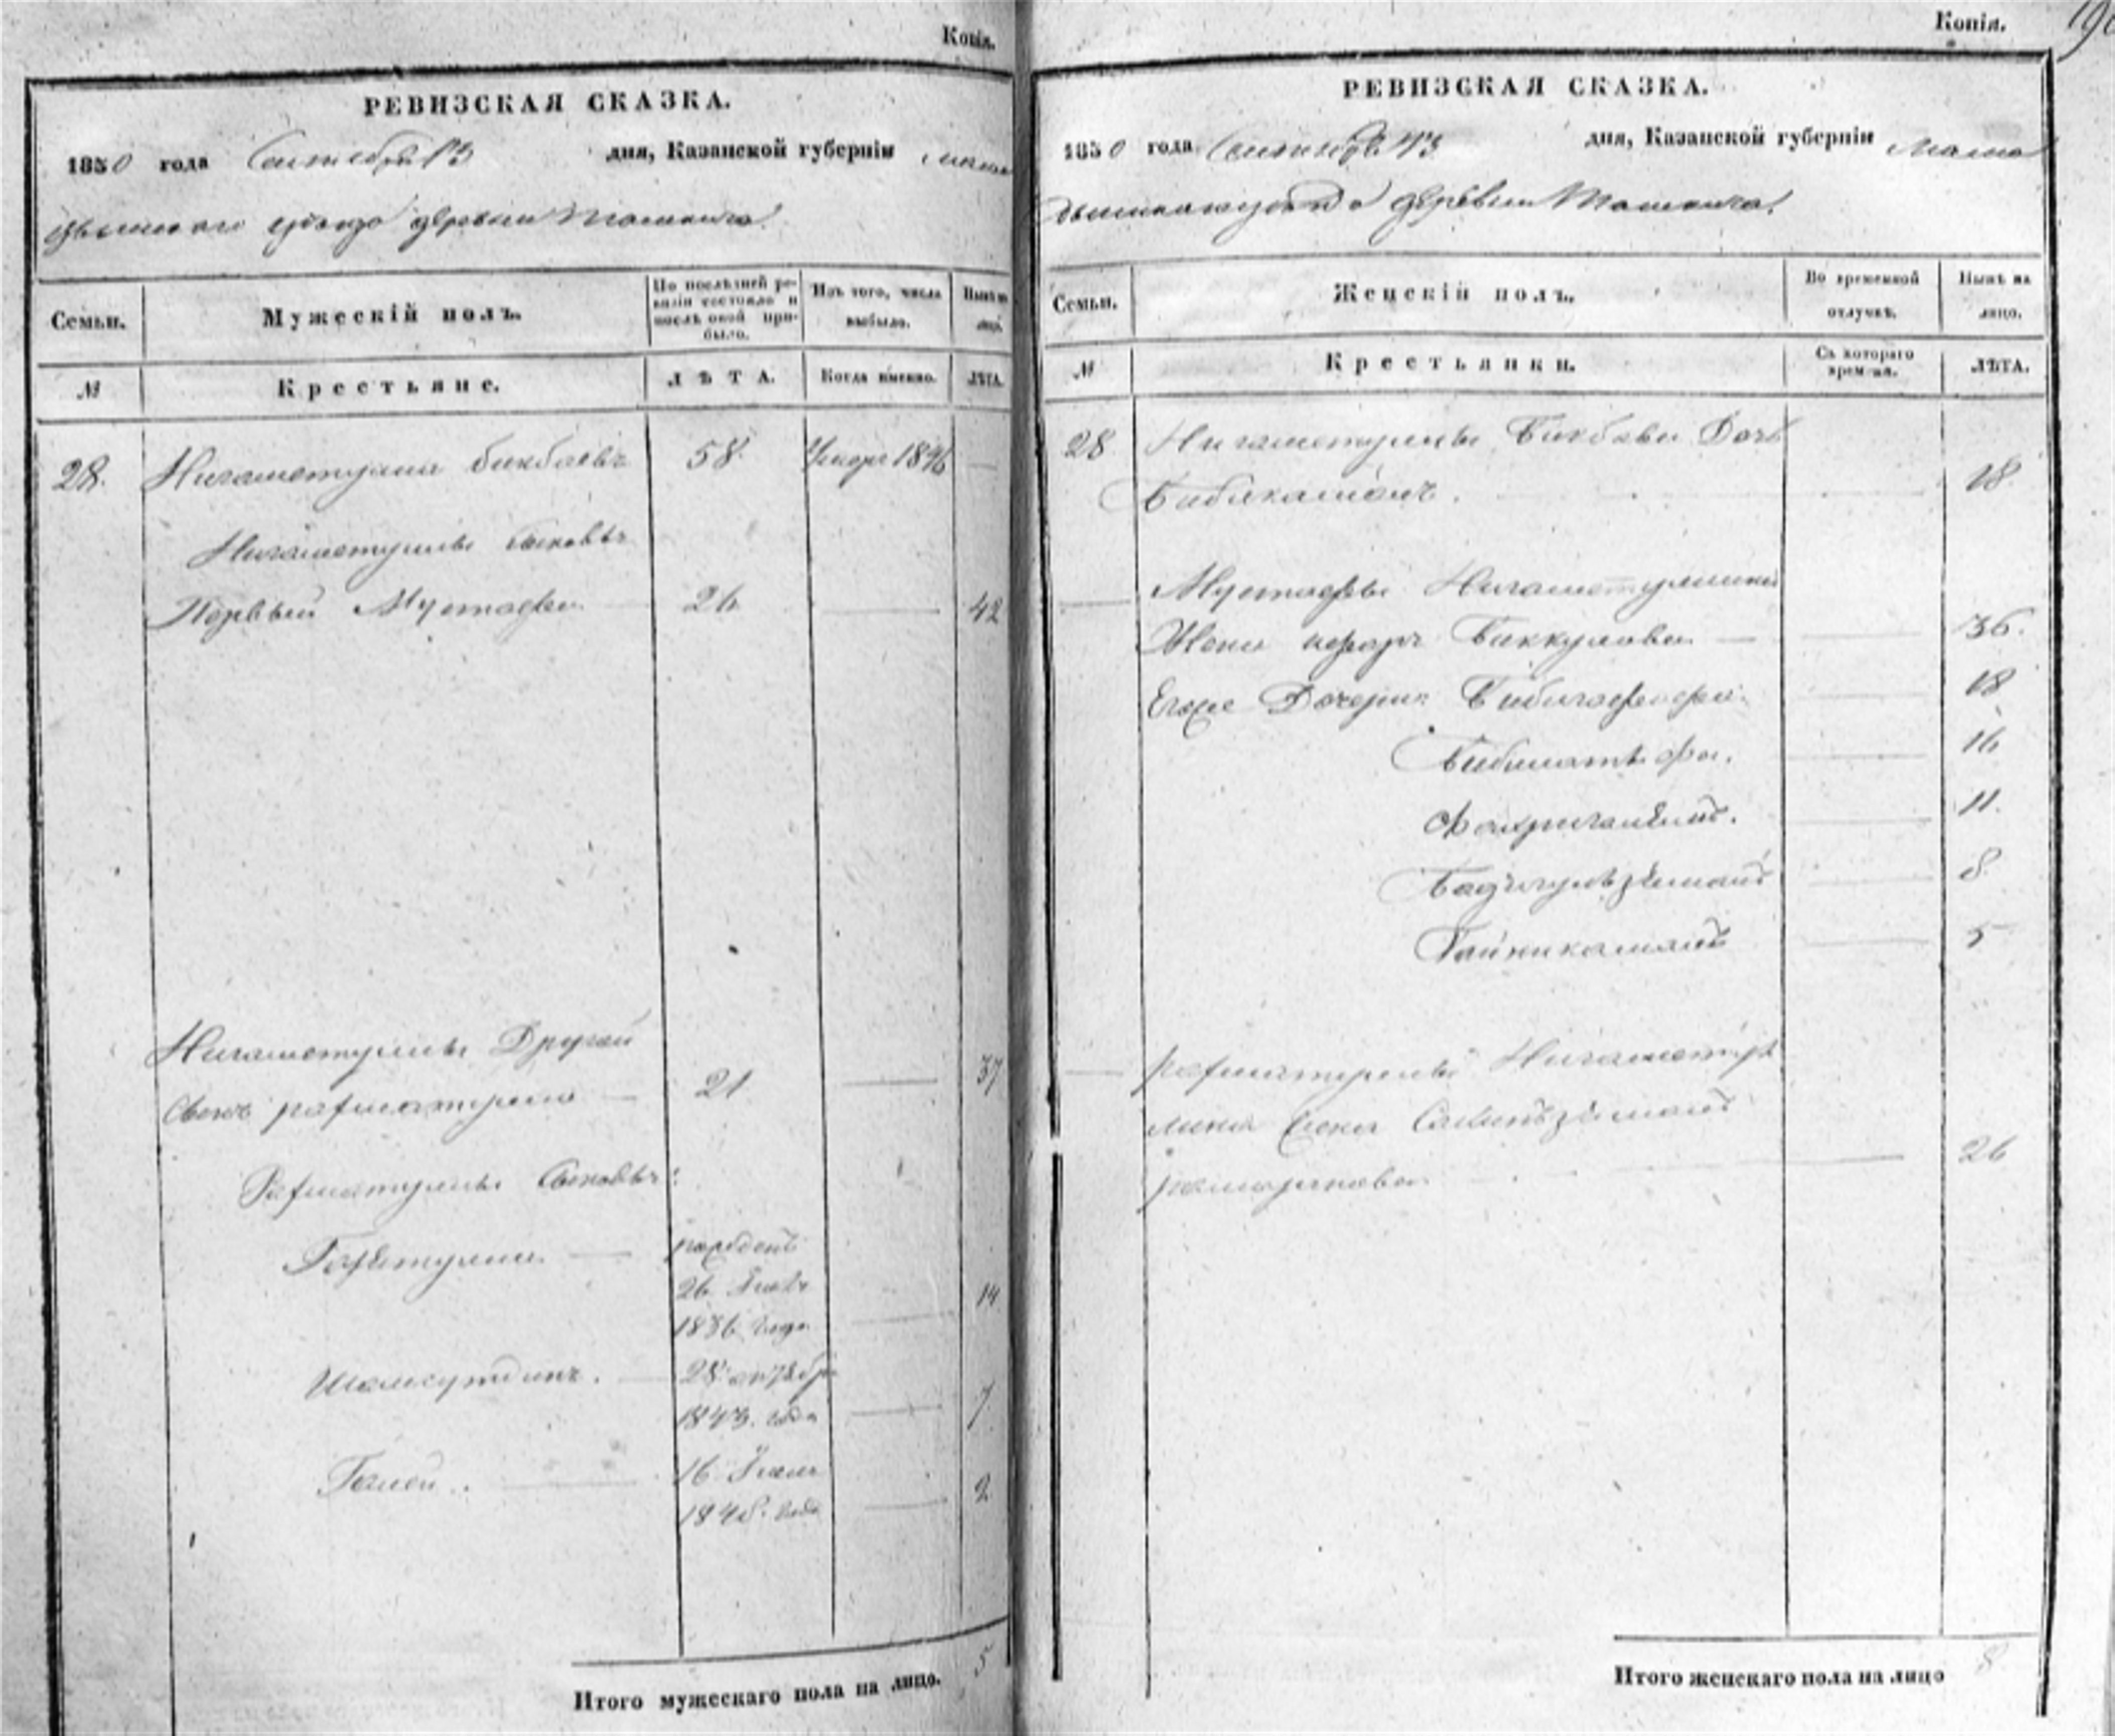 Копія.
РЕВИЗСКАЯ СКАЗКА.
1850 года Сентября 13 дня, Казанской губерніи Мама
дышскаго уѣзда деревни Ташкича
Семьи.
Мужескій полъ.
По послѣдней ре-
визіи состояло и
послѣ оной при-
было.
Изъ того, числа
выбыло.
Нынѣ на
лицо.
№
Крестьяне.
ЛѢТА.
Когда именно.
ЛѢТА.
28. Нигаметулла Бикбаевъ 58 Умеръ 1846
Нигаметуллы Сыновья
Первый Мустафа 26 42
Нигаметуллы Другой
Сынъ рахматулла 21 37
Рахматуллы Сыновья:
рожденъ
26
1836 года 14
Шамсутдинъ. 28 октября
1843. года 7
Галей. 16
1848. года 2
Итого мужескаго пола на лицо. 5
Копія.
РЕВИЗСКАЯ СКАЗКА.
1850 года Сентября 13 дня, Казанской губерніи Мама
дышскаго уѣзда деревни Ташкича
Семьи.
Женскій полъ.
Во временной
отлучкѣ.
Нынѣ на
лицо.
№
Крестьянки.
Съ котораго
времени.
ЛѢТА.
28 Нигаметуллы Бикбаева Дочь
Бибикамалъ. 18
Мустафы Нигаметуллина
Жена Биккулова 36.
Егоже Дочери: 18
16
11.
8
5
рахматуллы Нигаметул
лина Жена
26
Итого женскаго пола на лицо 8